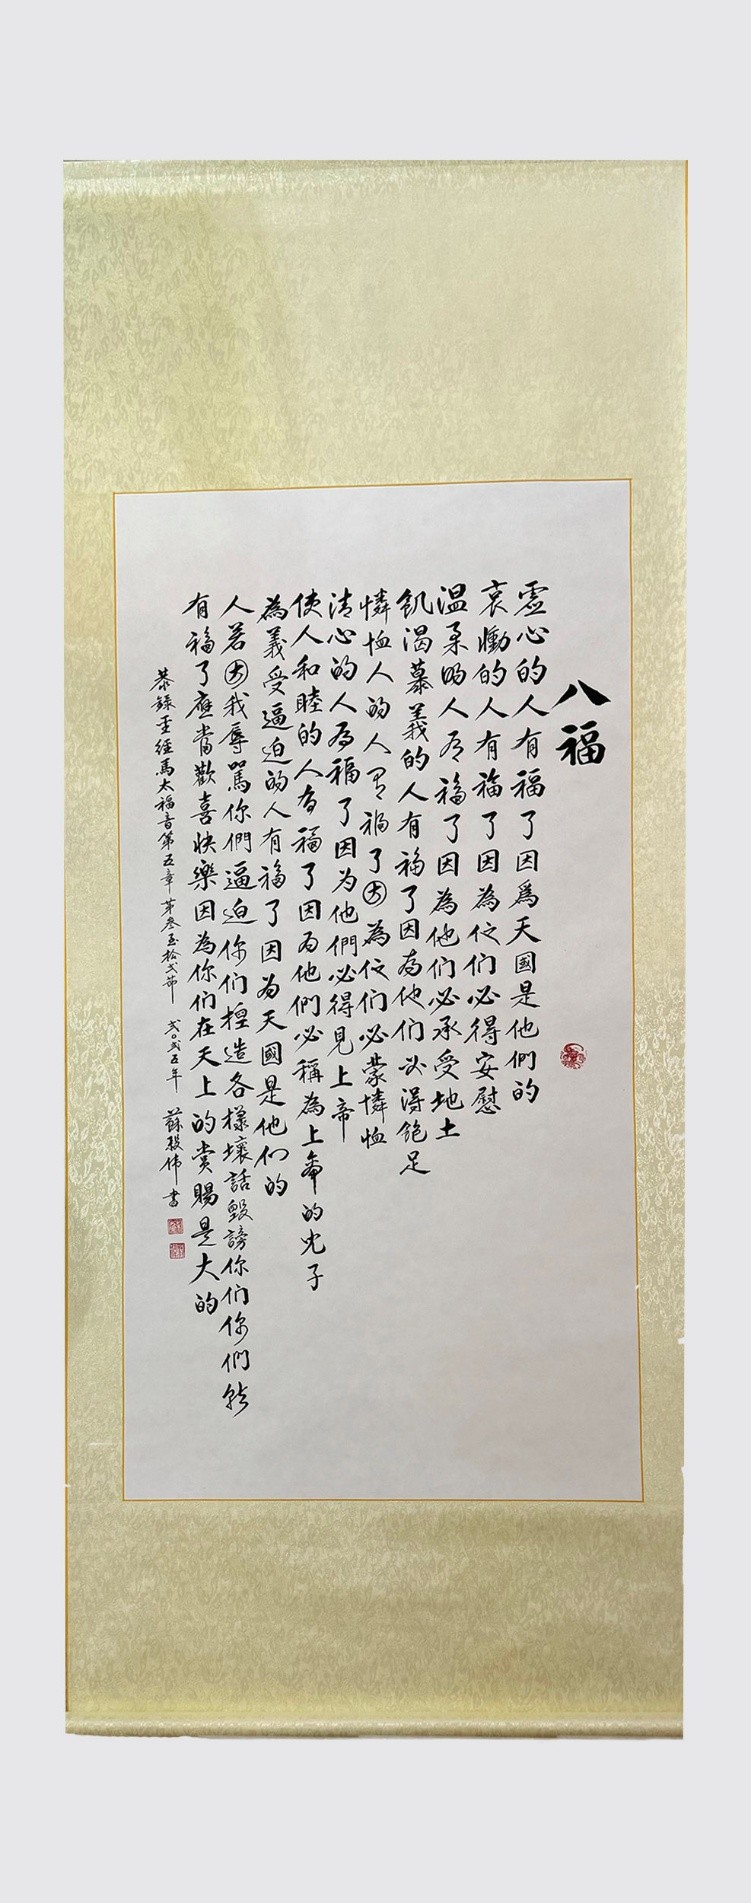 八福
虛心的人有福了因爲天國是他們的
哀慟的人有福了因為他们必得安慰
温柔的人有福了因為他们必承受地土
飢渴慕義的人有福了因為他们必得飽足
憐恤人的人有福了因為他们必蒙憐恤
清心的人有福了因为他們必得見上帝
使人和睦的人有福了因为他們必稱為上帝的兒子
為義受逼迫的人有福了因为天國是他们的
人若因我辱駡你們逼迫你们捏造各樣壞話毀謗你们你們就
有福了應當歡喜快樂因為你们在天上的赏賜是大的
恭錄圣經馬太福音第五章第叁至拾弍節 弍〇弍五年 蘇 偉書